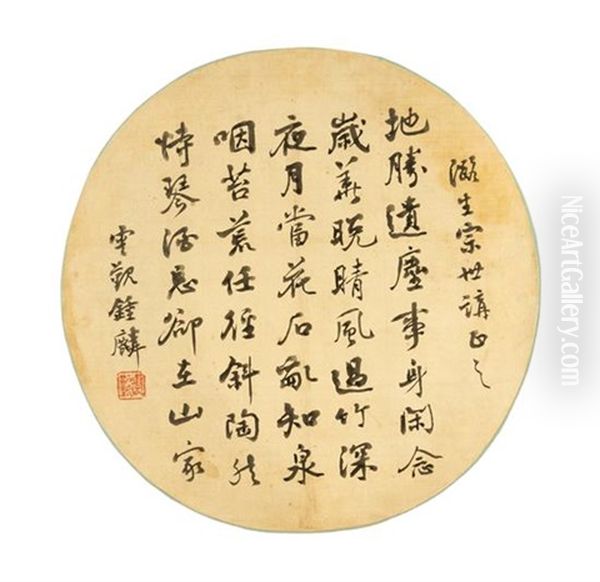 生宗世講正之
地勝遺塵事身閑念
歲華晚晴風過竹深
夜月當花石亂知泉
咽苔荒任徑斜陶然
恃琴酒忘卻在山家
鍾麟
NiceArtGallery.com